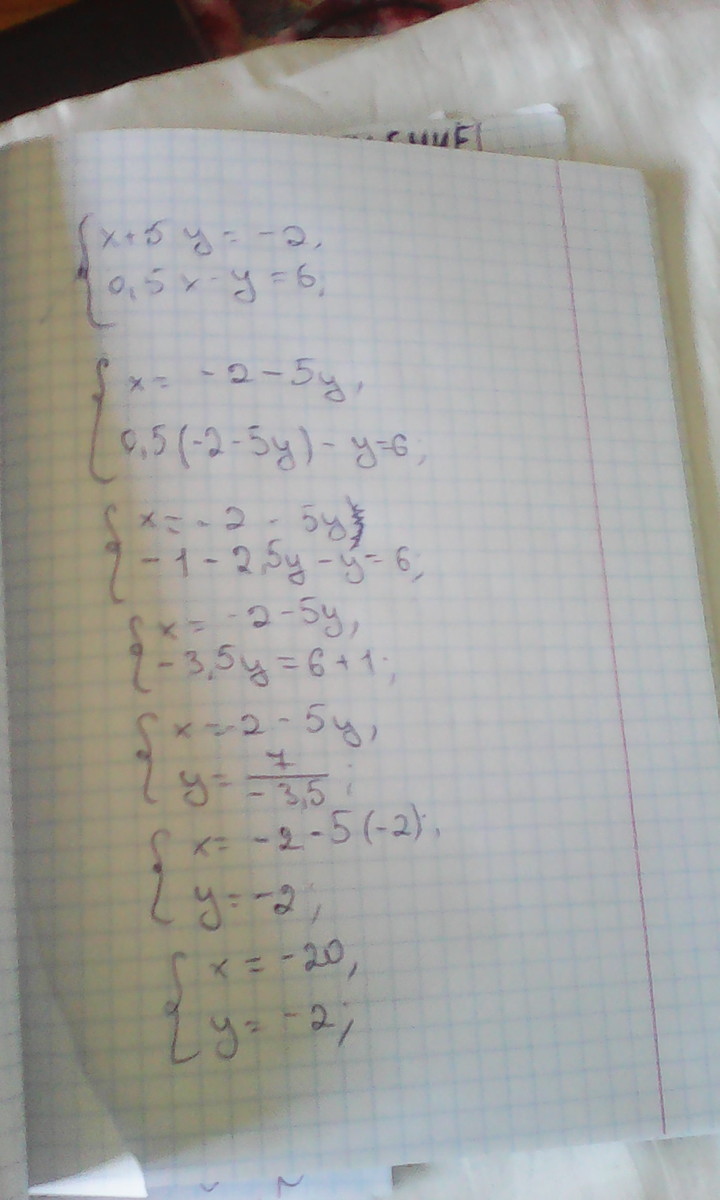 x+5y = -2,
0,5x - y = 6,
x = -2 - 5y,
0,5(-2-5y) - y = 6;
x = -2 - 5y
-1 - 2,5y - y = 6;
x = -2 - 5y,
-3,5y = 6 + 1;
x = -2 - 5y,
y = 7/-3,5;
x = -2 - 5(-2),
y = -2;
x = -20,
y = -2;